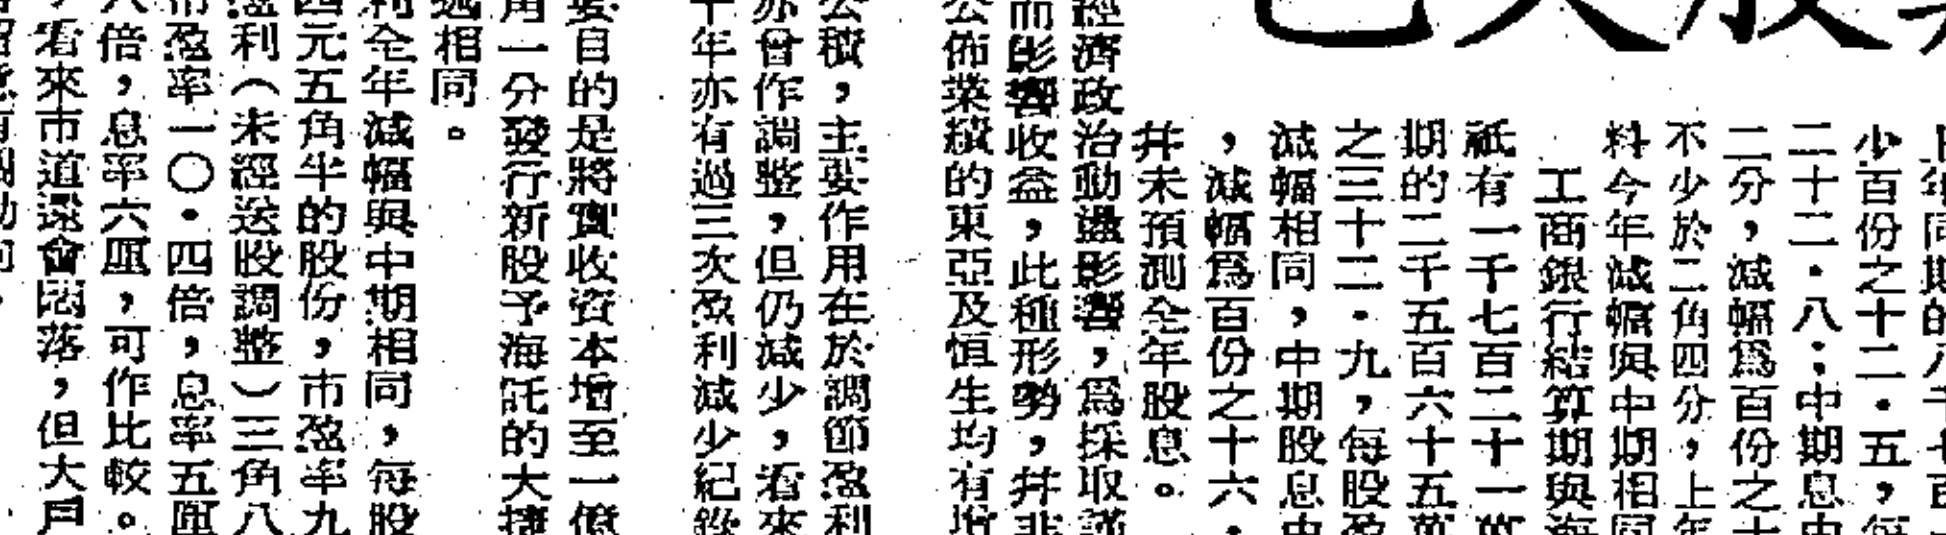 上年同期的八千七百
少百份之十二・五，每
二十二・八；中期息由
二分，減幅爲百份之十
不少於二角四分，上年
料今年減幅與中期相同
工商銀行結算期與海
祇有一千七百二十一萬
期的二千五百六十五萬
之三十二・九，每股盈
減幅相同，中期股息由
，減幅爲百份之十六・
幷未預測全年股息。
經濟政治動盪影響，爲採取謹
而影響收益，此種形勢，幷非
公佈業績的東亞及恒生均有增
公積，主要作用在於調節盈利
亦曾作調整，但仍減少，看來
十年亦有過三次盈利減少紀錄
要目的是將實收資本增至一億
角一分發行新股予海託的大捷
遞相同。
利全年減幅與中期相同，每股
四元五角半的股份，市盈率九
盈利（未經送股調整）三角八
市盈率一〇・四倍，息率五厘
八倍，息率六厘，可作比較。
，看來市道還會回落，但大戶